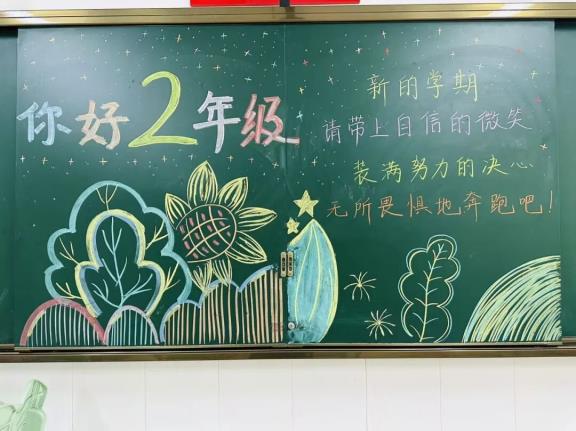 你好2年级
新的学期
请带上自信的微笑
装满努力的决心
无所畏惧地奔跑吧!